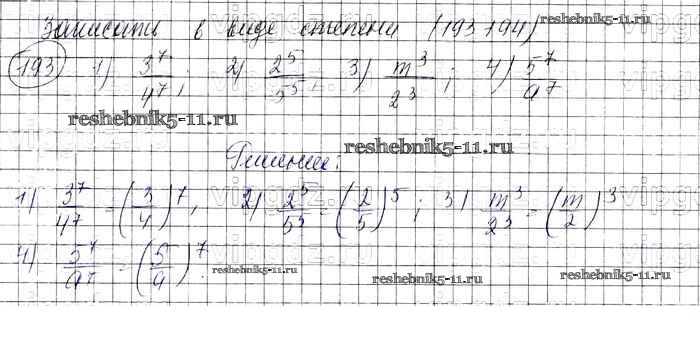 Записать в виде степени (193-194) reshebnik5-11.ru
193 1) 3^7/4^7, 2) 2^5/5^5, 3) m^3/2^3; 4) 5^7/a^7
reshebnik5-11.ru
reshebnik5-11.ru
Решение:
1) 3^7/4^7 = (3/4)^7, 2) 2^5/5^5 = (2/5)^5; 3) m^3/2^3 = (m/2)^3
4) 5^7/a^7 = (5/a)^7.
reshebnik5-11.ru
reshebnik5-11.ru
reshebnik5-11.ru